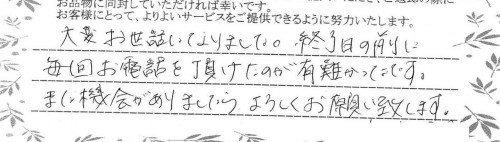 お品物に同封していただければ幸いです。
お客様にとって、よりよいサービスをご提供できるように努力いたします。
大変お世話になりました。終了日の前に
毎回お電話を頂けたのが有難かったです。
また機会がありましたら よろしくお願い致します。